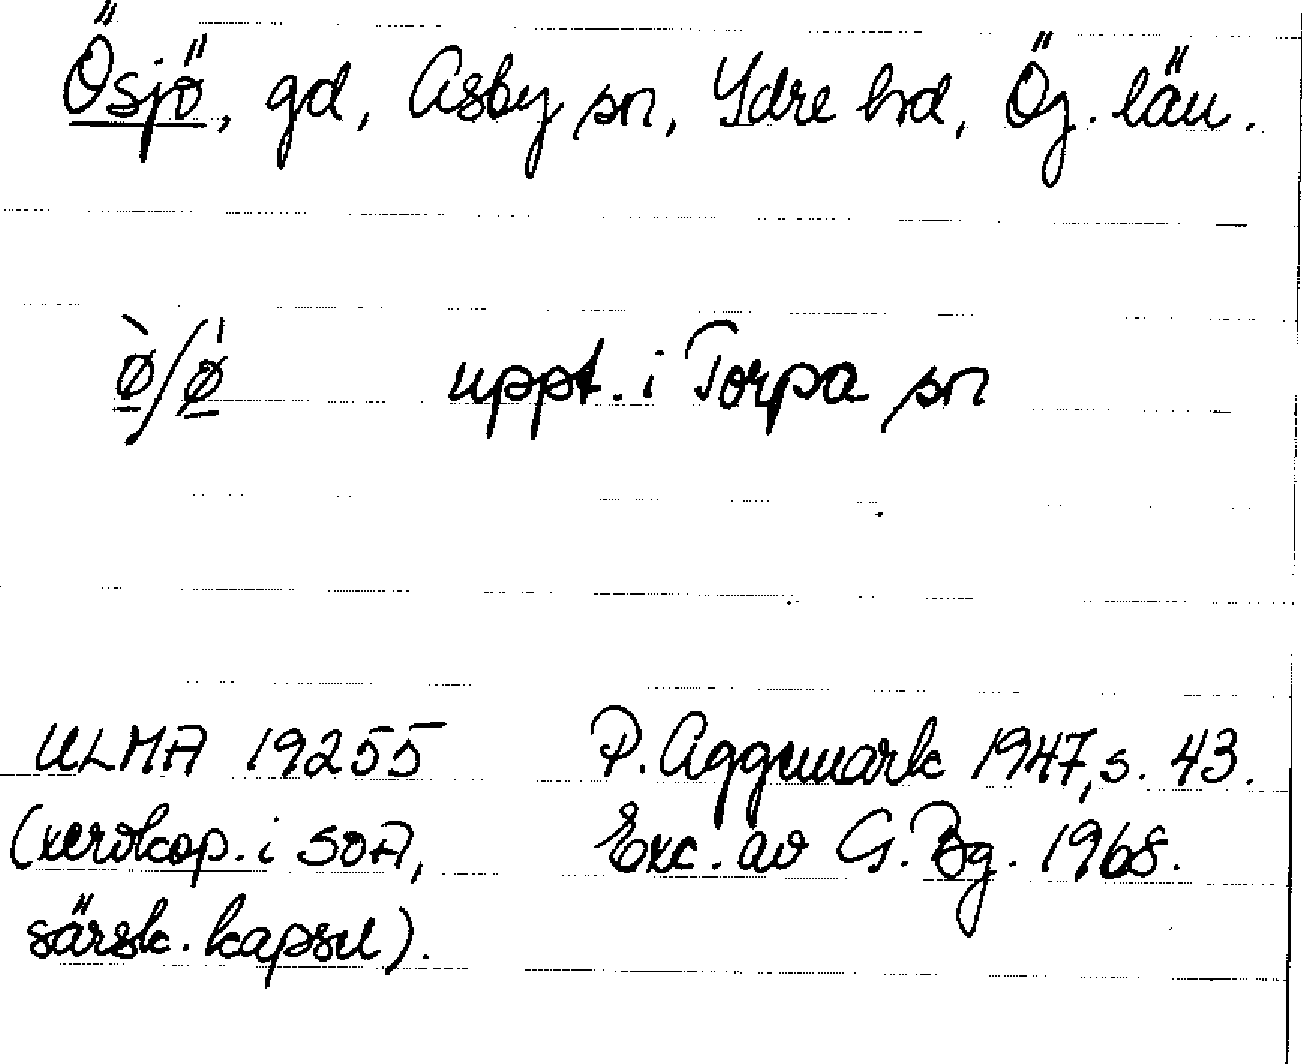 Ösjö, gd, Asby sn, Ydre hd, Ög. län.
ø̱̀/ǿ̱ uppt. i Torpa sn
ULMA 19255 P. Aggemark 1947, s. 43.
(xerokop. i SOA, Exc. av G. Bg. 1968.
särsk. kapsel).